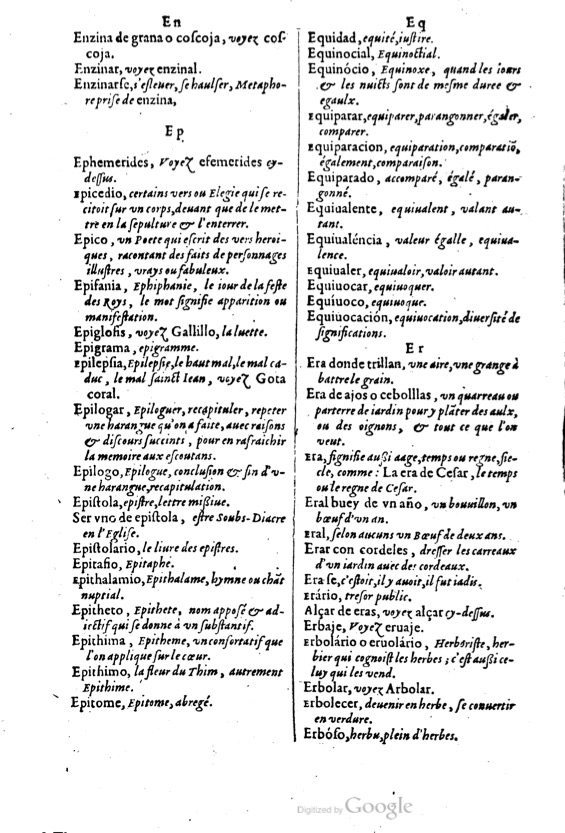 En
Enzina de grana o coſcoja, voyez coſ-
coja.
Enzinar, voyez enzinal.
Enzinarſe, s'eſleuer, ſe haulſer, Metapho-
re priſe de enzina,
Ep
Ephemerides, Voyez efemerides cy-
deſſus.
Epicedio, certains vers ou Elegie qui ſe re-
citoit ſur un corps, deuant que de le met-
tre en la ſepulture & l'enterrer.
Epico, vn Poete qui eſcrit des vers heroi-
ques, racontant des faits de perſonnages
illuſtres, vrays ou fabuleux.
Epifania, Ephiphanie, le iour de la feſte
des Roys, le mot ſignifie apparition ou
manifeſtation.
Epigloſis, voyez Gallillo, la luette.
Epigrama, epigramme.
Epilepſia, Epilepſie, le haut mal, le mal ca-
duc, le mal ſainct Iean, voyez Gota
coral.
Epilogar, Epiloguer, recapituler, repeter
vne harangue qu'on a faite, auec raiſons
& diſcours ſuccints, pour en rafraichir
la memoire aux eſcoutans.
Epilogo, Epilogue, concluſion & fin d'v-
ne harangue, recapitulation.
Epiſtola, epiſtre, lettre miſſiue.
Ser vno de epiſtola, eſtre Soubs-Diacre
en l'Egliſe.
Epiſtolário, le liure des epiſtres.
Epitafio, Epitaphe.
Epithalamio, Epithalame, hymne ou chãt
nuptial.
Epitheto, Epithete, nom appoſé & ad-
iectif qui ſe donne à vn ſubſtantif.
Epithima, Epitheme, vn confortatif que
l'on applique ſur le cœur.
Epithimo, la fleur du Thim, autrement
Epithime.
Epitome, Epitome, abregé.
Eq
Equidad, equité, iuſtire.
Equinocial, Equinoctial.
Equinócio, Equinoxe, quand les iours
& les nuicts ſont de meſme duree &
egaulx.
Equiparar, equiparer, parangonner, égaler,
comparer.
Equiparacion, equiparation, comparatiõ,
également, comparaiſon.
Equiparado, accomparé, égalé, paran-
gonné.
Equiualente, equiualent, valant au-
tant.
Equiualéncia, valeur égalle, equiua-
lence.
Equiualer, equiualoir, valoir autant.
Equiuocar, equiuoquer.
Equíuoco, equiuoque.
Equiuocación, equiuocation, diuerſité de
ſignifications.
Er
Era donde trillan, vne aire, vne grange à
battre le grain.
Era de ajos o cebolllas, vn quarreau ou
parterre de iardin pour y plãter des aulx,
ou des oignons, & tout ce que l'on
veut.
Era, ſignifie auſſi aage, temps ou regne, ſie-
cle, comme: La era de Ceſar, le temps
ou le regne de Ceſar.
Eral buey de vn año, vn bouuillon, vn
bœuf d'vn an.
Eral, ſelon aucuns vn Bœuf de deux ans.
Erar con cordeles, dreſſer les carreaux
d'vn iardin auec des cordeaux.
Era ſe, c'eſtoit, il y auoit, il fut iadis.
Erário, treſor public.
Alçar de eras, voyez alçar cy-deſſus.
Erbaje, Voyez eruaje.
Erbolário o eruolário, Herboriſte, her-
bier qui cognoiſt les herbes; c'eſt auſſi ce-
luy qui les vend.
Erbolar, voyez Arbolar.
Erbolecer, deuenir en herbe, ſe conuertir
en verdure.
Erbóſo, herbu, plein d'herbes.
Digitized by Google